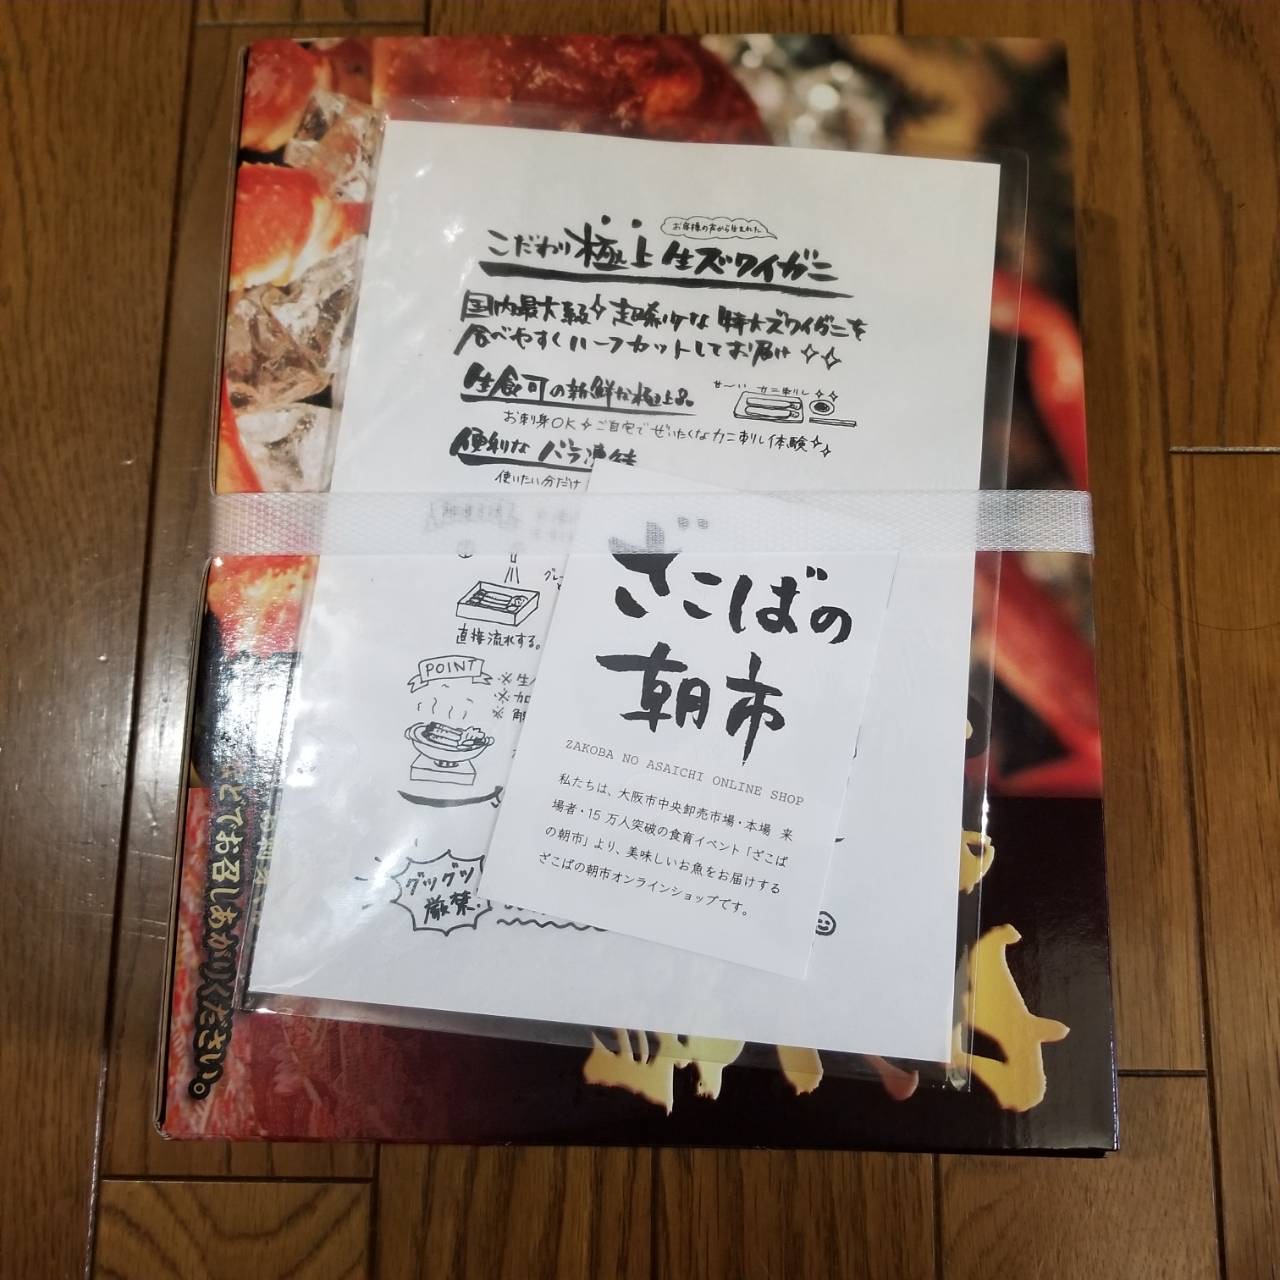 お客様の声から生まれた
こだわり極上生ズワイガニ
国内最大級 超特大な 特大ズワイガニを
食べやすくハーフカットしてお届け
生食可の新鮮な極上品
甘〜い カニ刺し
お刺身OK ご自宅でぜいたくなカニ刺し体験
便利なバラ凍結
使いたい分だけ
直接流水する。
POINT
※生
※加
※解
グツグツ
厳禁。
ざこばの
朝市
ZAKOBA NO ASAICHI ONLINE SHOP
私たちは、大阪市中央卸売市場・本場 来
場者・15万人突破の食育イベント「ざこば
の朝市」より、美味しいお魚をお届けする
ざこばの朝市オンラインショップです。
などでお召しあがりください。